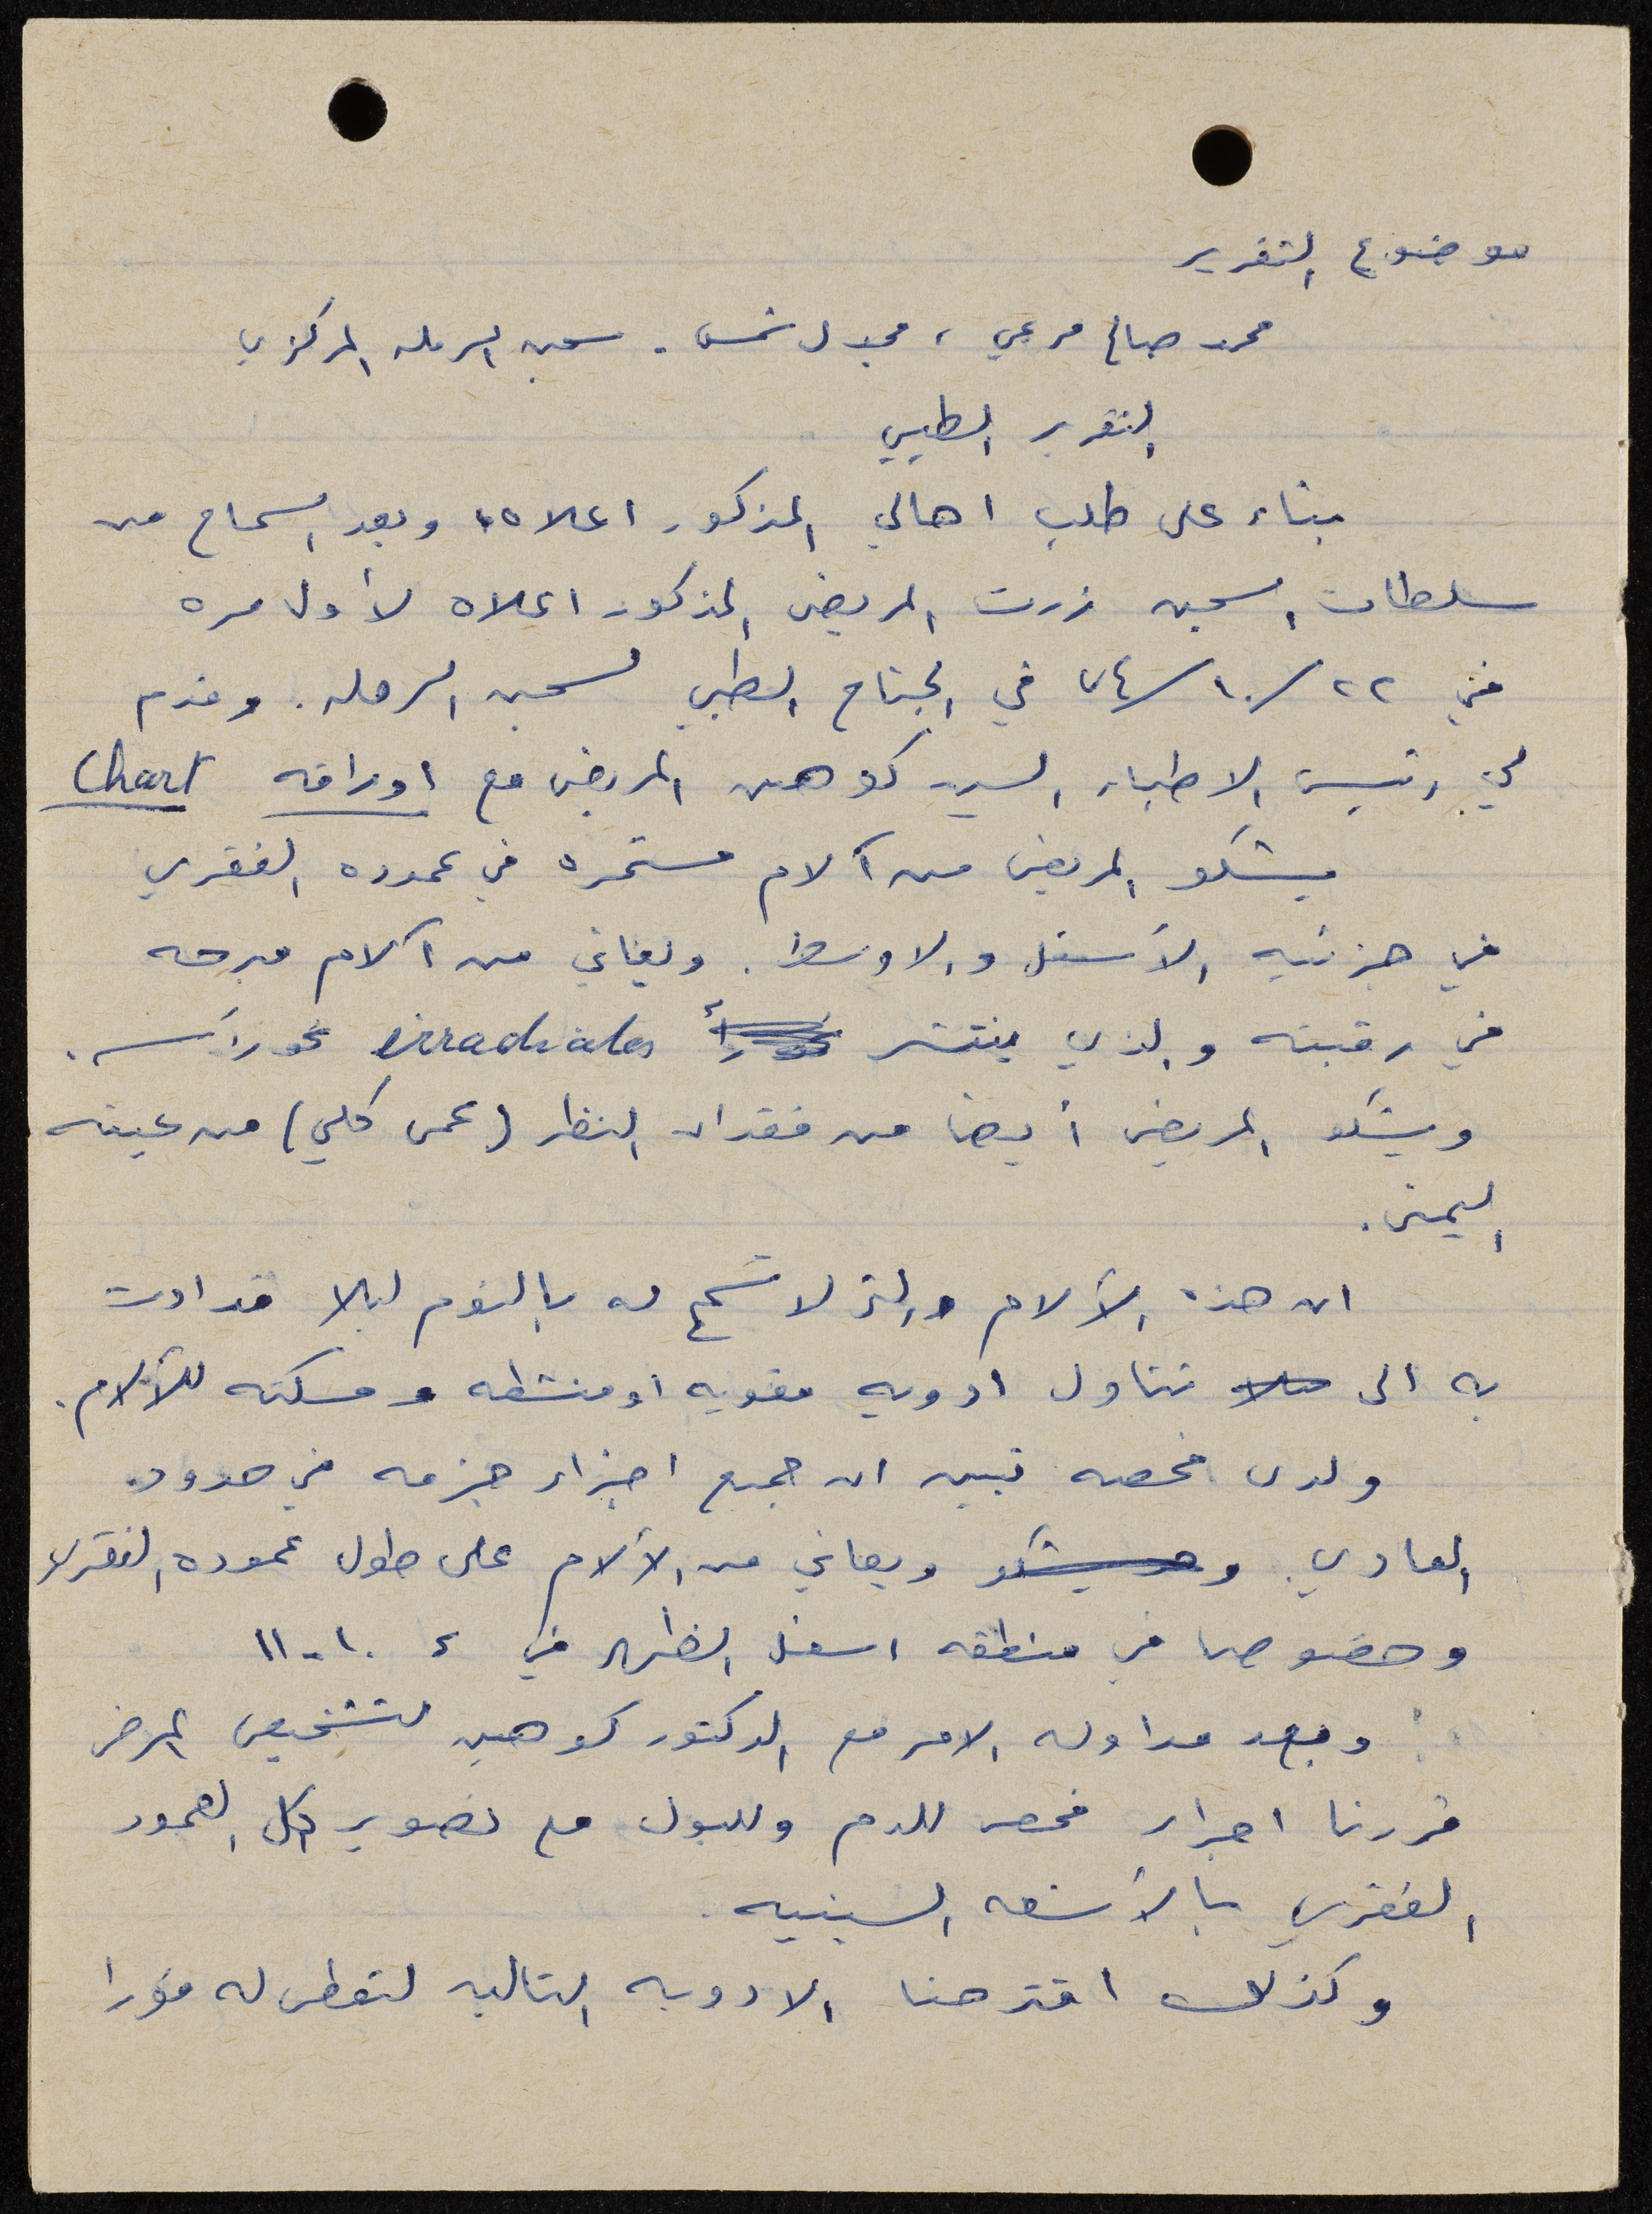 موضوع التقرير
محمد صالح مرعي ، مجدل شمس . سجن الرمله المركزي
التقرير الطبي
بناء على طلب اهالي المذكور اعلاه ، وبعد السماح من
سلطات السجن زرت المريض المذكور اعلاه لأول مره
في ٢٢ /١٠/ ٧٤ في الجناح الطبي لسجن الرمله . وقدم
لي رئيس الاطباء السيد كوهين المريض مع اوراقه Chart
يشكو المريض من آلام مستمره في عموده الفقري
في جزئيه الأسفل والاوسط . ويعاني من آلام مبرحه
في رقبته والذي ينتشر irradiates نحو رأسه .
ويشكو المريض أيضا من فقدان النظر (عمى كلي) من عينه
اليمنى .
ان هذه الآلام والتي لا تسمح له بالنوم ليلا قد ادت
به الى تناول ادويه مقويه او منشطه ومسكنه للآلام .
ولدى فحصه تبين ان جميع اجزاء جزمه في حدود
العادي . و ويعاني من الآلام على طول عموده الفقري
وخصوصا في منطقه اسفل الظهر في ١٠ - ١١
وبعد مداوله الامر مع الدكتور كوهين لتشخيص المرض
قررنا اجراء فحص للدم وللبول مع تصوير لكل العمود
الفقري بالأشعه السينيه .
وكذلك اقترحنا الادويه التاليه لتعطى له فورا